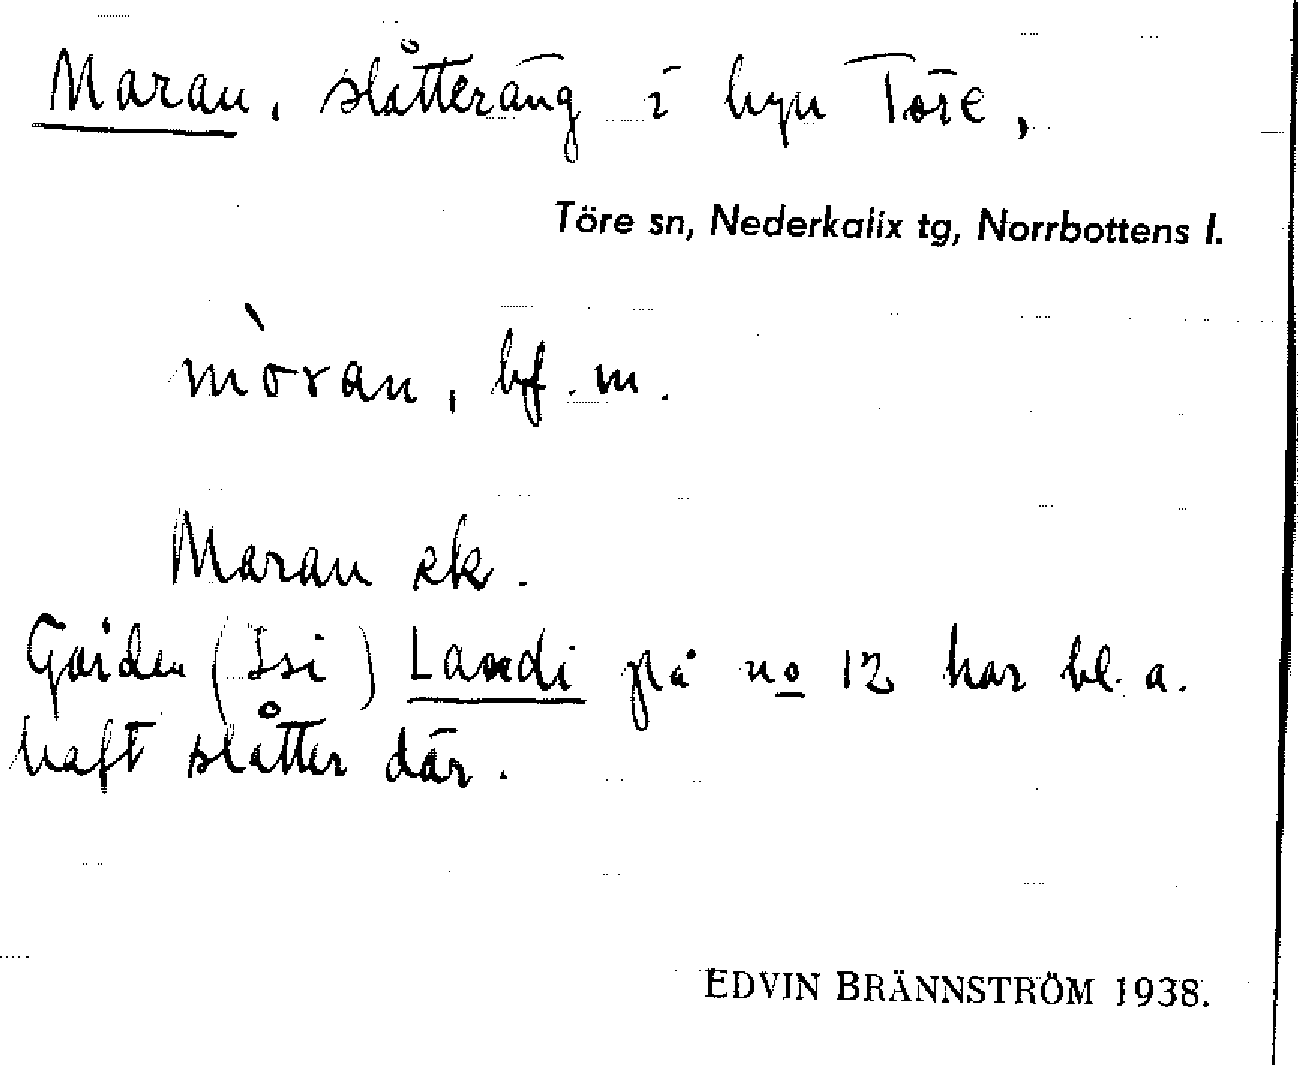 Maran, slåtteräng i byn Töre,
Töre sn, Nederkalix tg, Norrbottens l.
mòran, bf. m.
Maran ek.
Gården (Isi) Landi på no 12 har bl. a.
haft slåtter där.
EDVIN BRÄNNSTRÖM 1938.